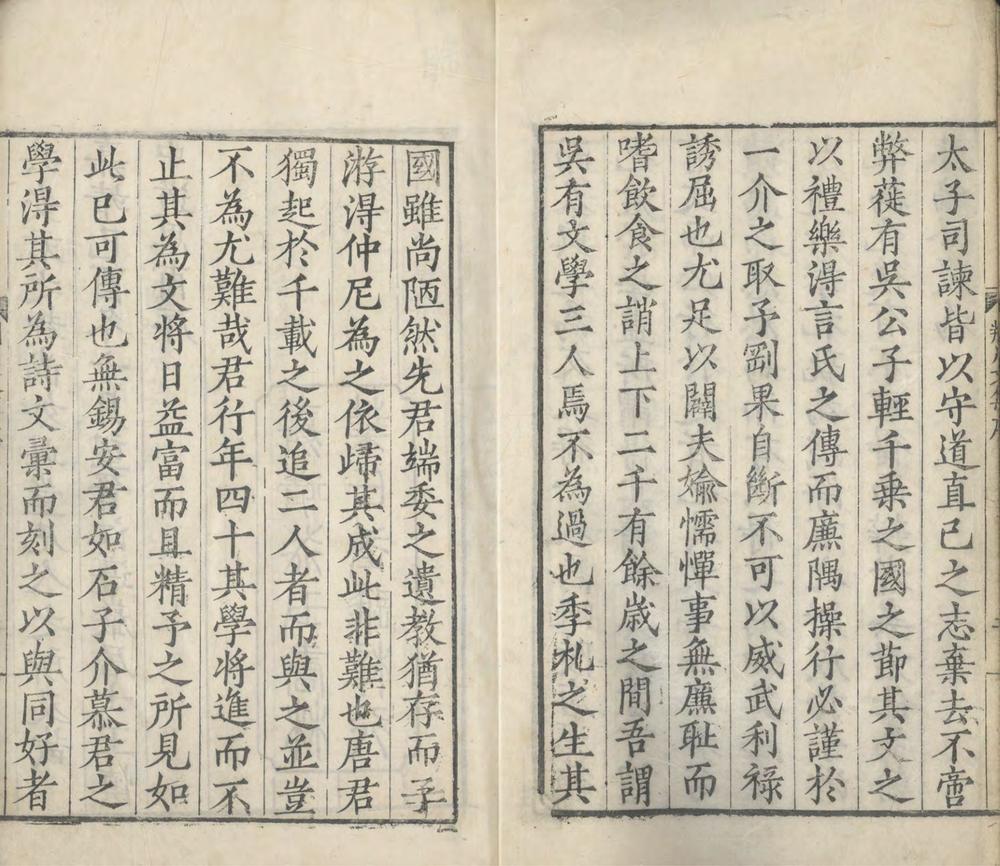 太子司諫皆以守道直已之志棄去不啻
弊蓰有吳公子輕千乗之國之節其文之
以禮樂淂言氏之傳而廉隅操行必謹於
一介之取予剛果自斷不可以威武利祿
誘屈也尤足以闢夫婾懦憚事無廉耻而
嗜飲食之誚上下二千有餘歲之間吾謂
吳有文學三人焉不為過也季札之生其
國雖尚陋然先君端委之遺教猶存而子
游淂仲尼為之依歸其成此非難也唐君
獨起於千載之後追二人者而與之並豈
不為尤難哉君行年四十其學将進而不
止其為文將日益富而且精予之所見如
此已可傳也無錫安君如石子介慕君之
學淂其所為詩文彙而刻之以與同好者